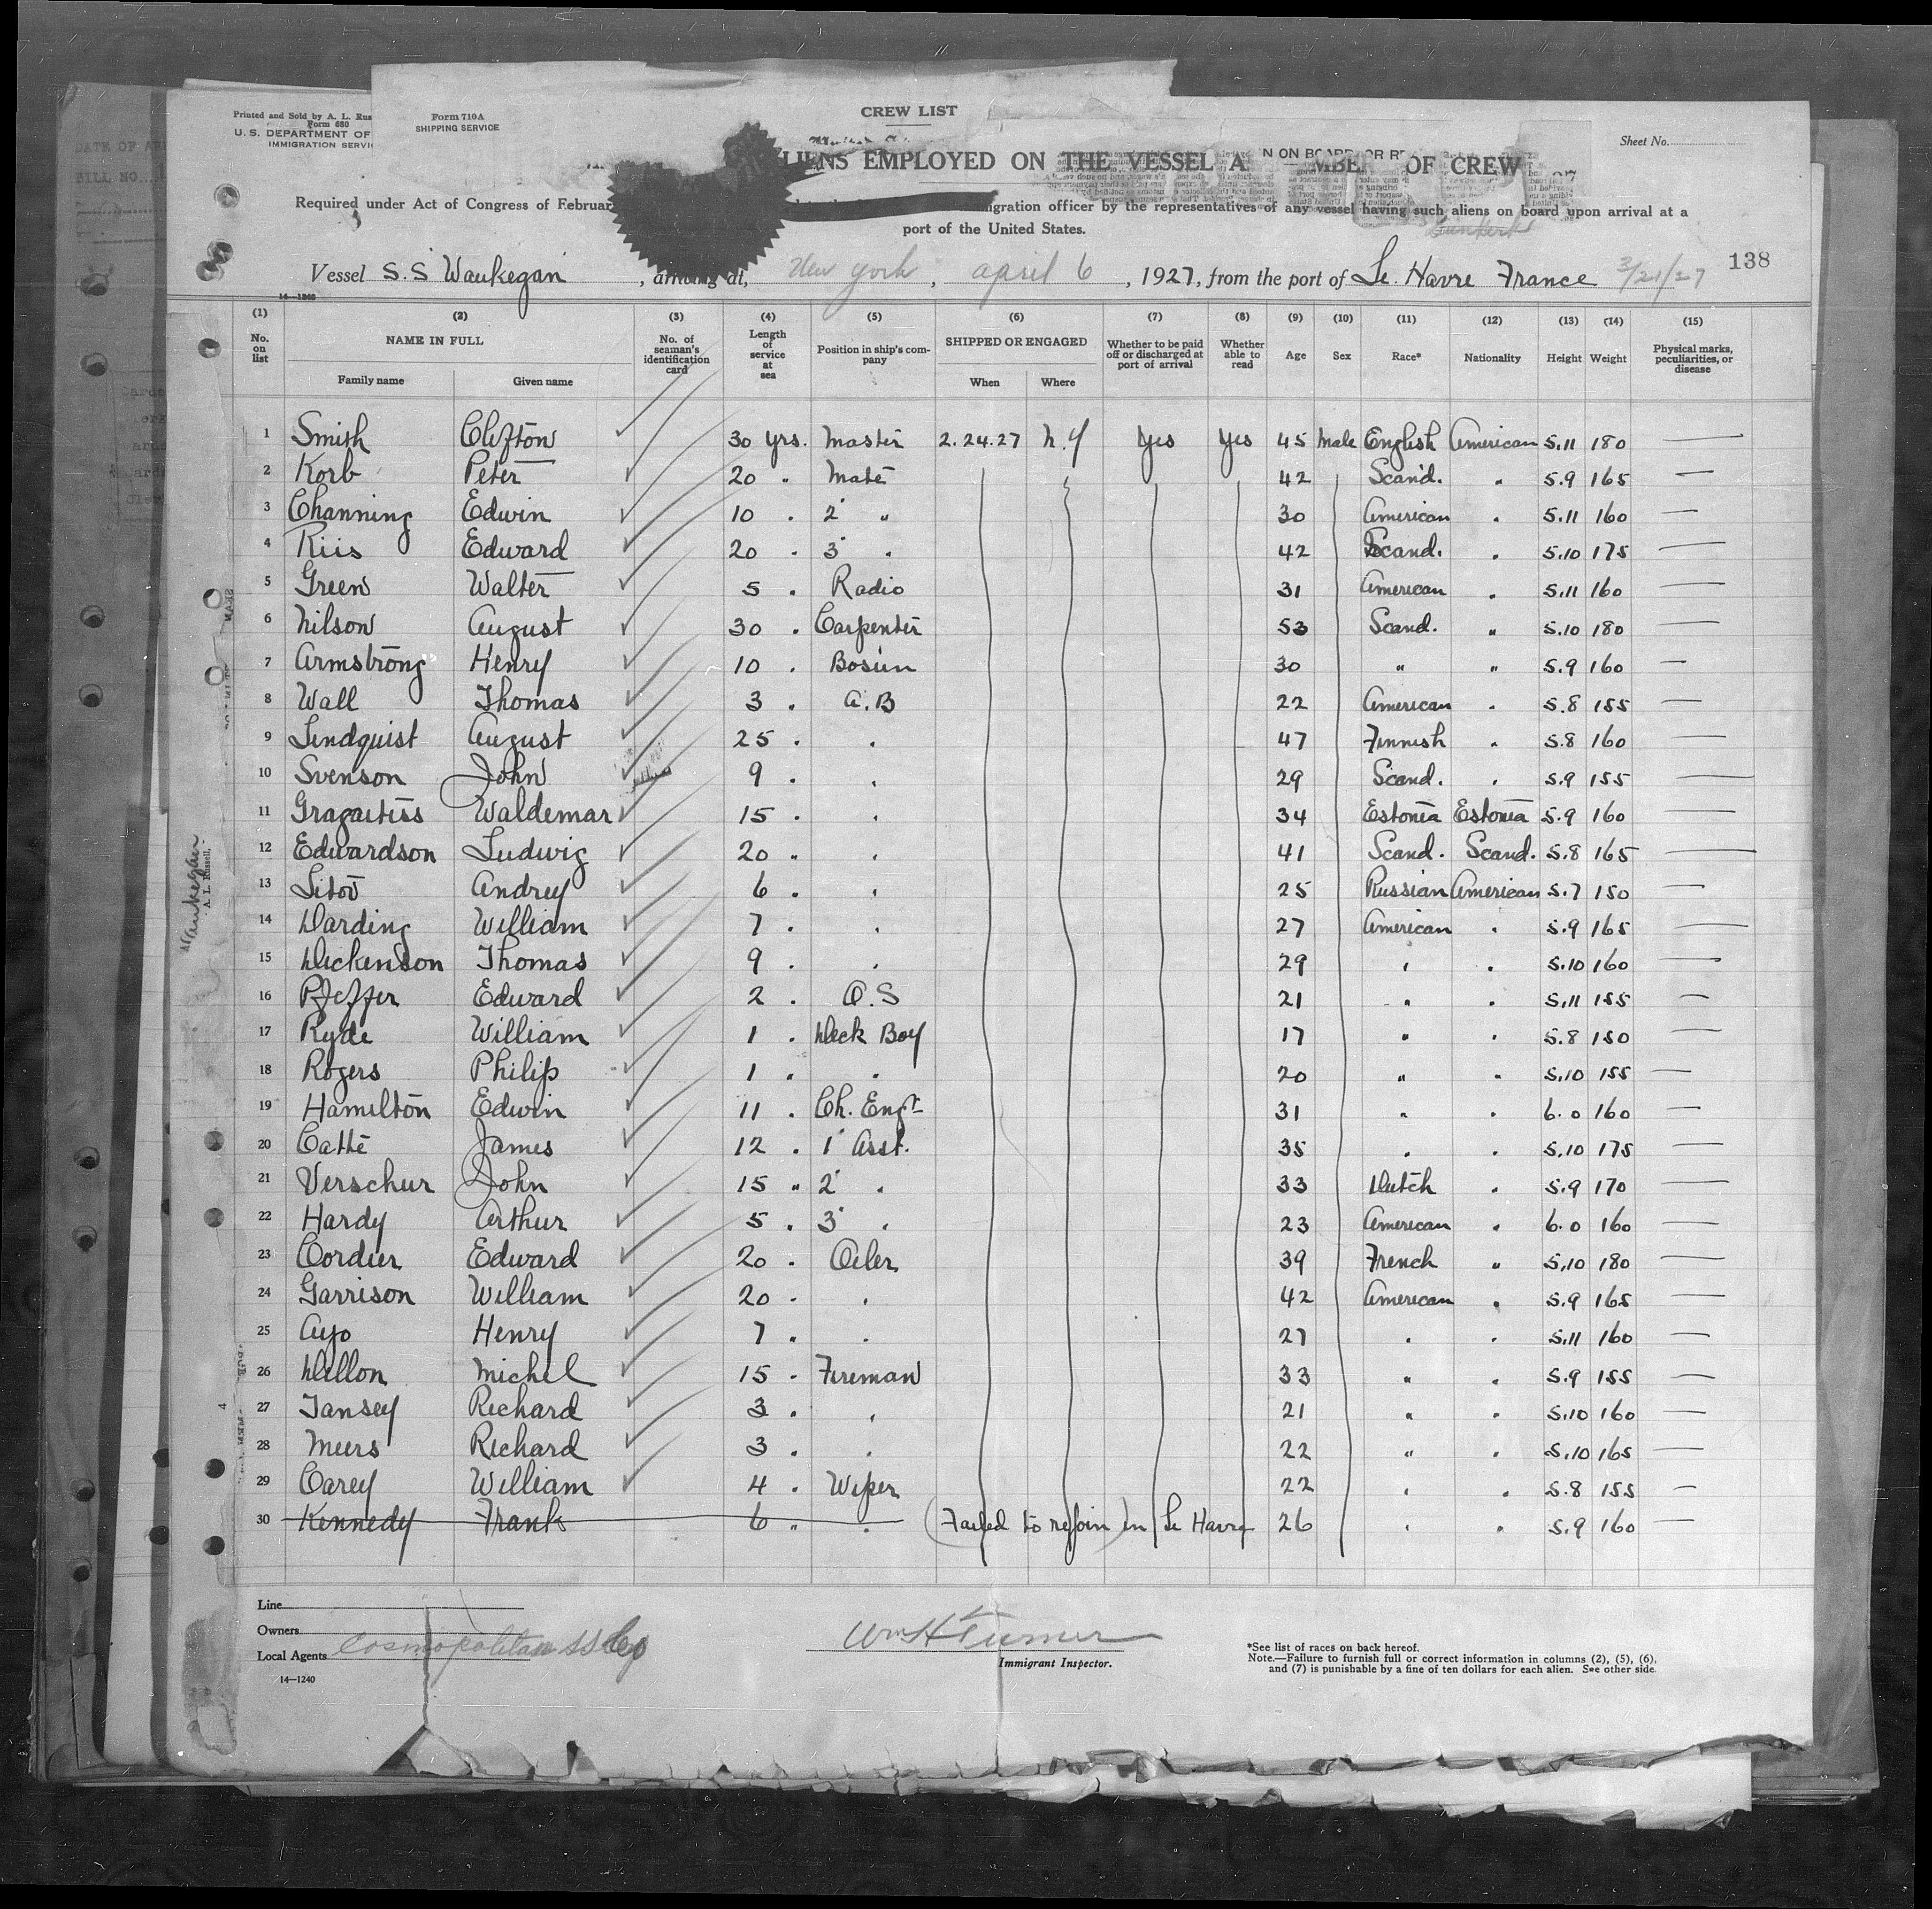 Printed and Sold by A. L. Rus
Form 680
U. S. DEPARTMENT OF
IMMIGRATION SERVI
Form 710A
SHIPPING SERVICE
CREW LIST
Sheet No.
LIENS EMPLOYED ON THE VESSEL A MBE OF CREW
N ON BOARD OR RE
Required under Act of Congress of Februar migration officer by the representatives of any vessel having such aliens on board upon arrival at a
port of the United States.
Dunkirk
Vessel S.S Waukegan, arriving at, New York, April 6, 1927, from the port of Le. Havre France 3/21/27
138
14—1240
(1) (2) (3) (4) (5) (6) (7) (8) (9) (10) (11) (12) (13) (14) (15)
No. on list NAME IN FULL Family name Given name No. of seaman's identification card Length of service at sea Position in ship's company SHIPPED OR ENGAGED When Where Whether to be paid off or discharged at port of arrival Whether able to read Age Sex Race* Nationality Height Weight Physical marks, peculiarities, or disease
1 Smith Clifton 30 yrs. Master 2.24.27 N.Y Yes Yes 45 Male English American 5.11 180 —
2 Korb Peter 20 " Mate 42 Scand. " 5.9 165 —
3 Channing Edwin 10 " 2 " 30 American " 5.11 160 —
4 Riis Edward 20 " 3 " 42 Scand. " 5.10 175 —
5 Green Walter 5 " Radio 31 American " 5.11 160 —
6 Nilson August 30 " Carpenter 53 Scand. " 5.10 180 —
7 Armstrong Henry 10 " Bosun 30 " " 5.9 160 —
8 Wall Thomas 3 " A.B 22 American " 5.8 155 —
9 Lindquist August 25 " " 47 Finnish " 5.8 160 —
10 Svenson John 9 " " 29 Scand. " 5.9 155 —
11 Gragaitiss Waldemar 15 " " 34 Estonia Estonia 5.9 160 —
12 Edwardson Ludwig 20 " " 41 Scand. Scand. 5.8 165 —
13 Sitov Andrey 6 " " 25 Russian American 5.7 150 —
14 Harding William 7 " " 27 American " 5.9 165 —
15 Dickenson Thomas 9 " " 29 " " 5.10 160 —
16 Pfeffer Edward 2 " O.S 21 " " 5.11 155 —
17 Ryde William 1 " Deck Boy 17 " " 5.8 150 —
18 Rogers Philip 1 " " 20 " " 5.10 155 —
19 Hamilton Edwin 11 " Ch. Engr 31 " " 6.0 160 —
20 Catte James 12 " 1 Asst. 35 " " 5.10 175 —
21 Verschur John 15 " 2 " 33 Dutch " 5.9 170 —
22 Hardy Arthur 5 " 3 " 23 American " 6.0 160 —
23 Cordier Edward 20 " Oiler 39 French " 5.10 180 —
24 Garrison William 20 " " 42 American " 5.9 165 —
25 Ayo Henry 7 " " 27 " " 5.11 160 —
26 Dillon Michel 15 " Fireman 33 " " 5.9 155 —
27 Tansey Richard 3 " " 21 " " 5.10 160 —
28 Meers Richard 3 " " 22 " " 5.10 165 —
29 Carey William 4 " Wiper 22 " " 5.8 155 —
30 Kennedy Frank 6 " " (Failed to rejoin) in Le Havre 26 " " 5.9 160 —
Waukegan
A. L. Russell,
4
Line
Owners
Local Agents Cosmopolitan SS Co
14—1240
Wm H Turner
Immigrant Inspector.
*See list of races on back hereof.
Note.—Failure to furnish full or correct information in columns (2), (5), (6),
and (7) is punishable by a fine of ten dollars for each alien. See other side.